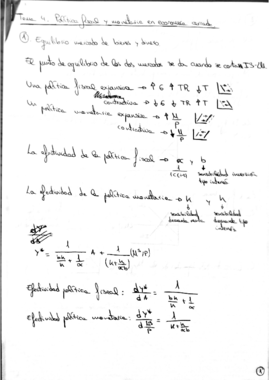 Tema 4. Política fiscal y monetaria en economía cerrada
① Equilibrio mercado de bienes y dinero
El punto de equilibrio de los dos mercados se da cuando se cortan IS-LM.
Una política fiscal expansiva → ↑ G ↑ TR ↓ T
contractiva → ↓ G ↓ TR ↑ T
Una política monetaria expansiva → ↑ M/P
contractiva → ↓ M/P
La efectividad de la política fiscal → α y b
sensibilidad inversión tipo interés
La efectividad de la política monetaria → k y h
sensibilidad demanda renta
sensibilidad demanda tipo interés
dy*
dA
y* = 1 / (bk/h + 1/α) A + 1 / (k + h/αb) (M/P)
Efectividad política fiscal: dy*/dA = 1 / (bk/h + 1/α)
Efectividad política monetaria: dy*/d M/P = 1 / (k + h/αb)
①